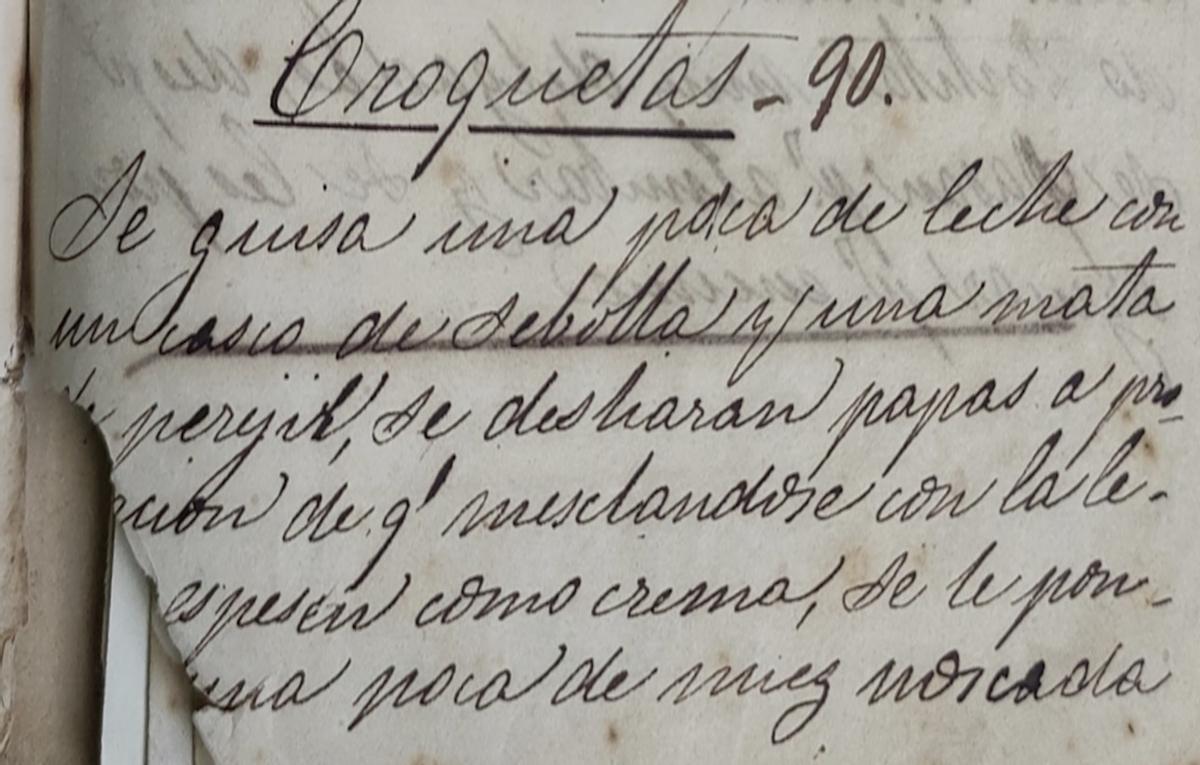 Croquetas - 90.
Se guisa una poca de leche con
un casco de sebolla y una mata
perejil, se desharan papas a pro-
cion de q' mesclandose con la le-
espesen como crema, se le pon-
una poca de muez noscada